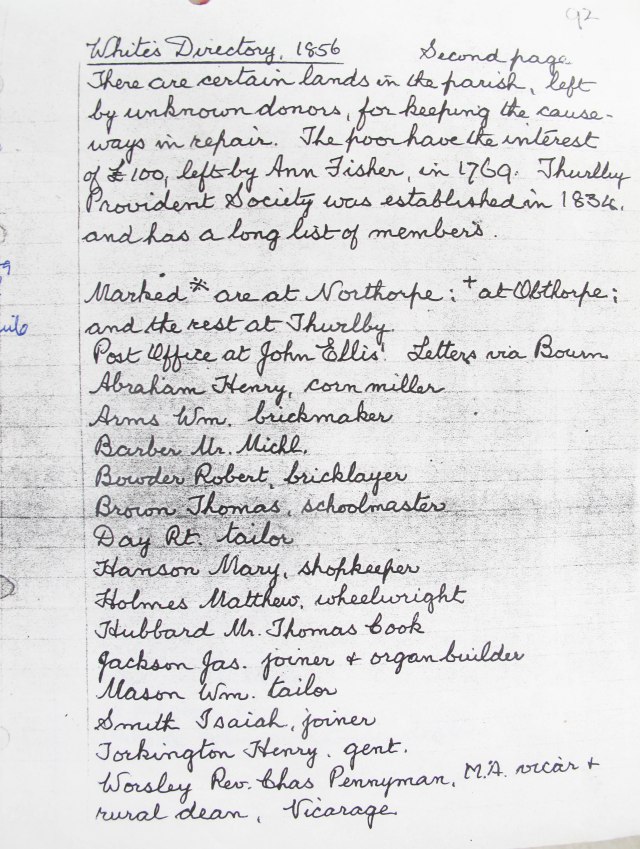 92
White's Directory, 1856 Second page
There are certain lands in the parish, left
by unknown donors, for keeping the cause-
ways in repair. The poor have the interest
of £100, left by Ann Fisher, in 1769. Thurlby
Provident Society was established in 1834.
and has a long list of members.
Marked * are at Northorpe; + at Obthorpe;
and the rest at Thurlby.
Post Office at John Ellis'. Letters via Bourn
Abraham Henry, corn miller
Arms Wm. brickmaker
Barber Mr. Michl.
Bowder Robert, bricklayer
Brown Thomas, schoolmaster
Day Rt. tailor
Hanson Mary, shopkeeper
Holmes Matthew, wheelwright
Hubbard Mr. Thomas Cook
Jackson Jas. joiner + organ builder
Mason Wm. tailor
Smith Isaiah, joiner
Torkington Henry. gent.
Worsley Rev. Chas Pennyman, M.A. vicar +
rural dean, Vicarage